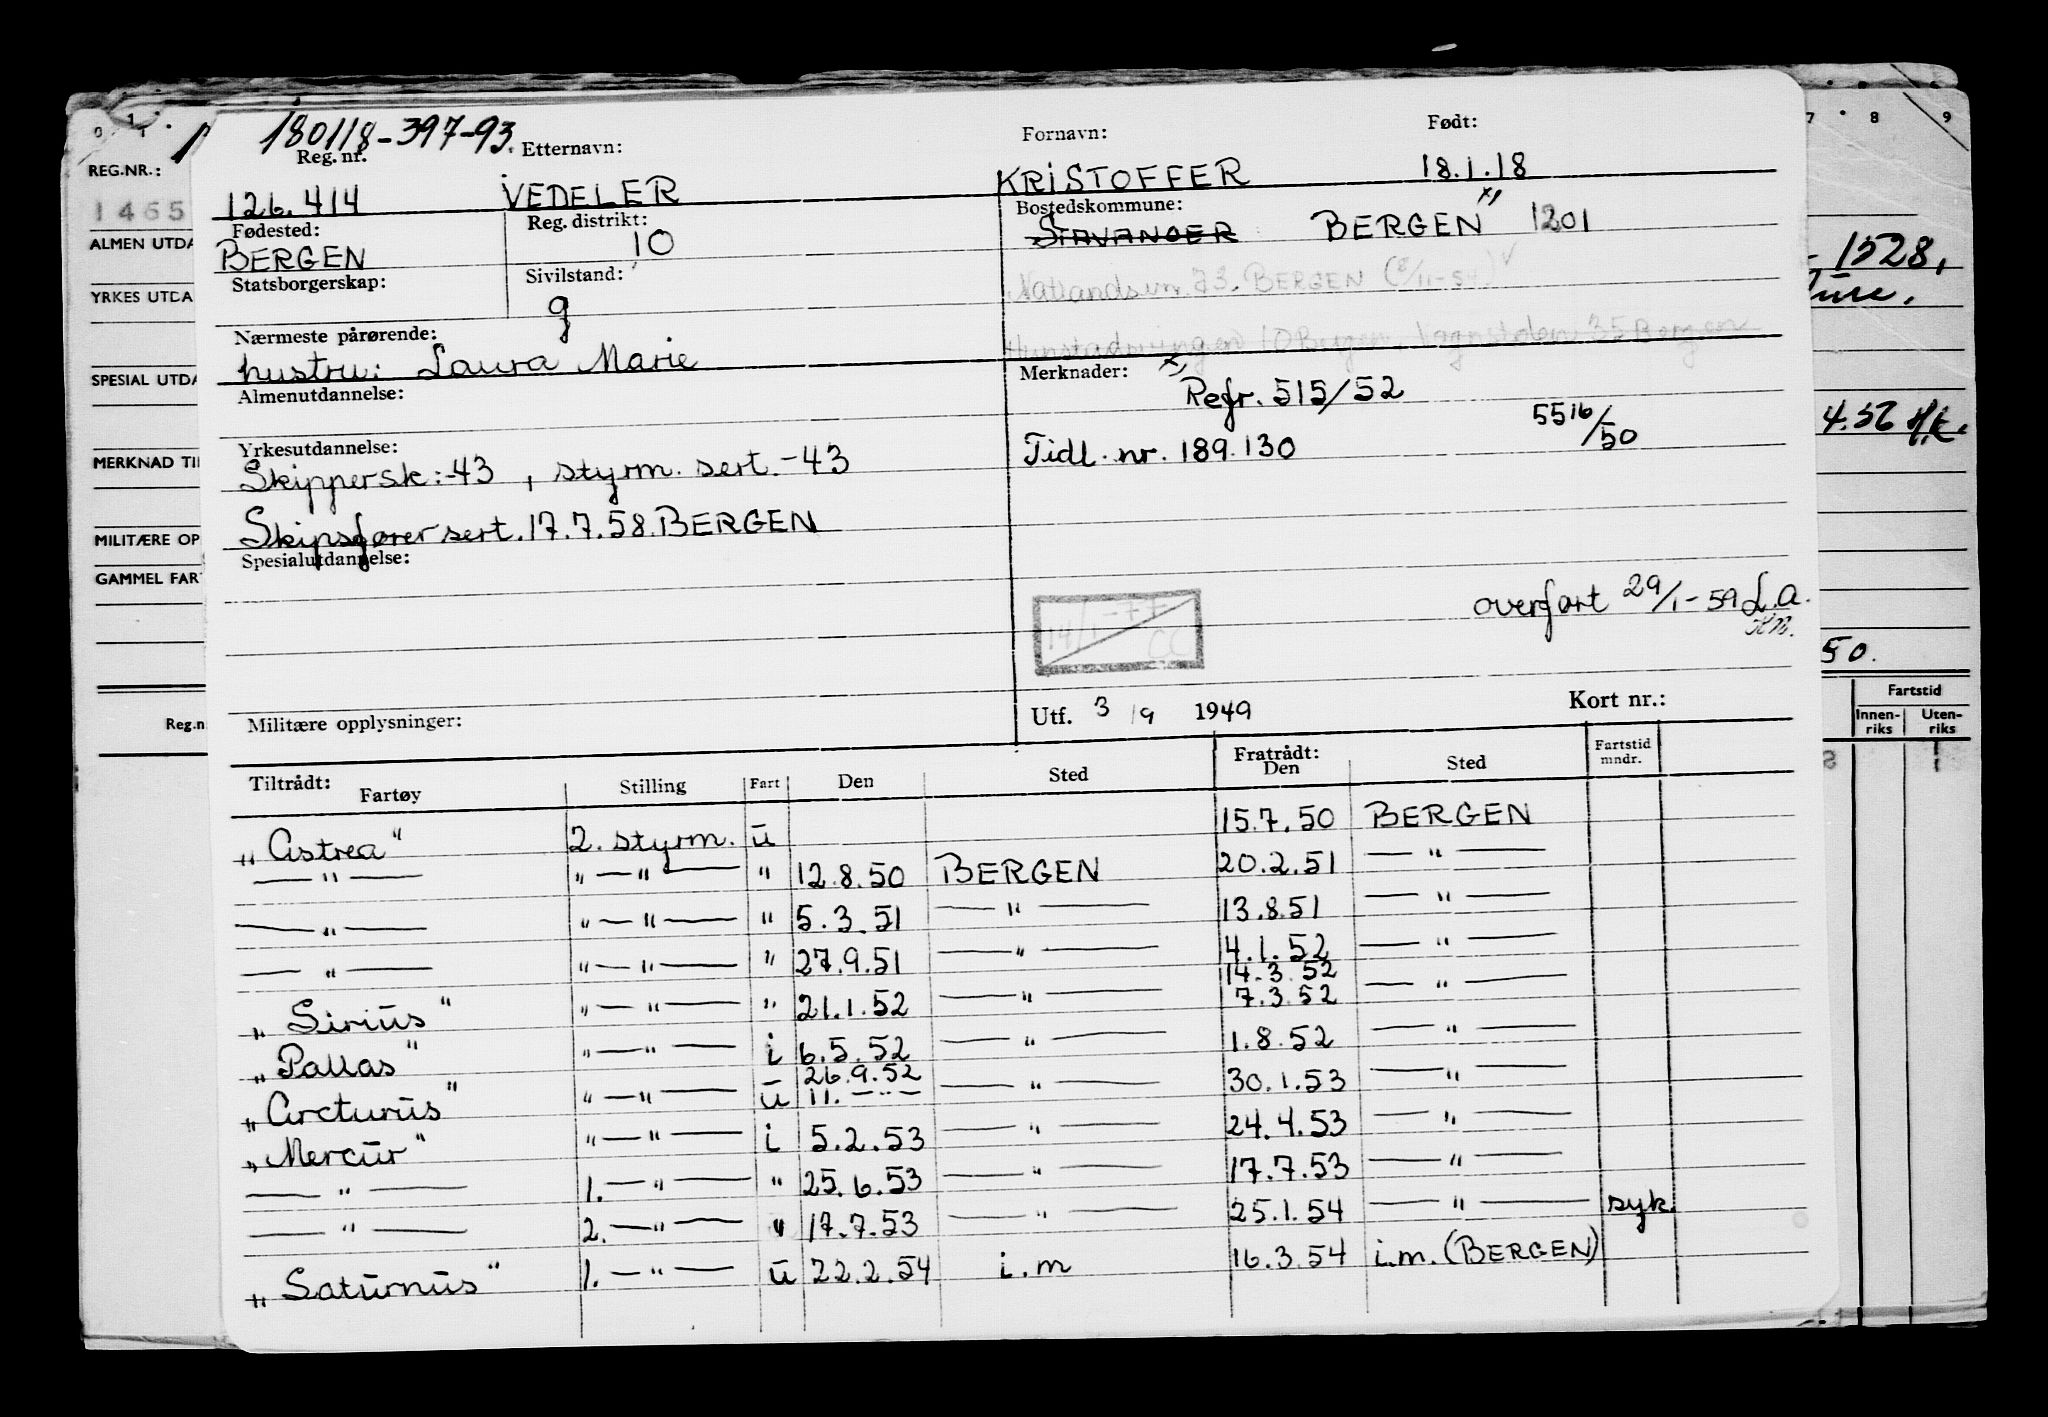 180118-397-93.
Reg. nr. Etternavn: Fornavn: Født:
126.414 VEDELER KRISTOFFER 18.1.18
Fødested: Reg. distrikt: Bostedskommune:
BERGEN 10 STAVANGER BERGEN x) 1201
Statsborgerskap: Sivilstand:
g
BERGEN
Nærmeste pårørende:
hustru: Laura Marie
10 Bergen, 35 Bergen
Almenutdannelse: Merknader: x) Refr. 515/52
Yrkesutdannelse:
Skippersk:-43, styrm. sert.-43 Tidl. nr. 189.130 5516/50
Skipsfører sert. 17.7.58. BERGEN
Spesialutdannelse:
overført 29/1-59 L.A.
14/1-77
CC
Militære opplysninger: Utf. 3/9 1949 Kort nr.:
Tiltrådt: Fartøy Stilling Fart Den Sted Fratrådt: Den Sted Fartstid mndr.
„Astrea“ 2. styrm. u 15.7.50 BERGEN
—"— "—"— " 12.8.50 BERGEN 20.2.51 —"—
—"— "—"— " 5.3.51 —"— 13.8.51 —"—
—"— "—"— " 27.9.51 —"— 4.1.52 —"—
14.3.52
„Sirius“ "—"— " 21.1.52 —"— 7.3.52 —"—
„Pallas“ "—"— i 6.5.52 —"— 1.8.52 —"—
26.9.52
„Arcturus“ "—"— u 11.-"- —"— 30.1.53 —"—
„Mercur“ "—"— i 5.2.53 —"— 24.4.53 —"—
—"— 1.—"— " 25.6.53 —"— 17.7.53 —"—
—"— 2.—"— " 17.7.53 —"— 25.1.54 —"— syk.
„Saturnus“ 1.—"— u 22.2.54 i.m 16.3.54 i.m. (BERGEN)
REG.NR.:
1465
ALMEN UTDA
YRKES UTDA
SPESIAL UTDA
MERKNAD TI
MILITÆRE OP
GAMMEL FAR
Reg.n
7 8 9
1528,
4.56
50.
Fartstid
Innen-riks Uten-riks